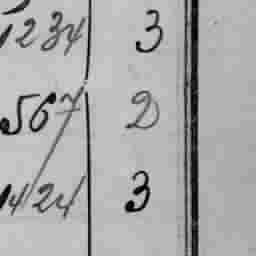 1234 3
567 2
1424 3